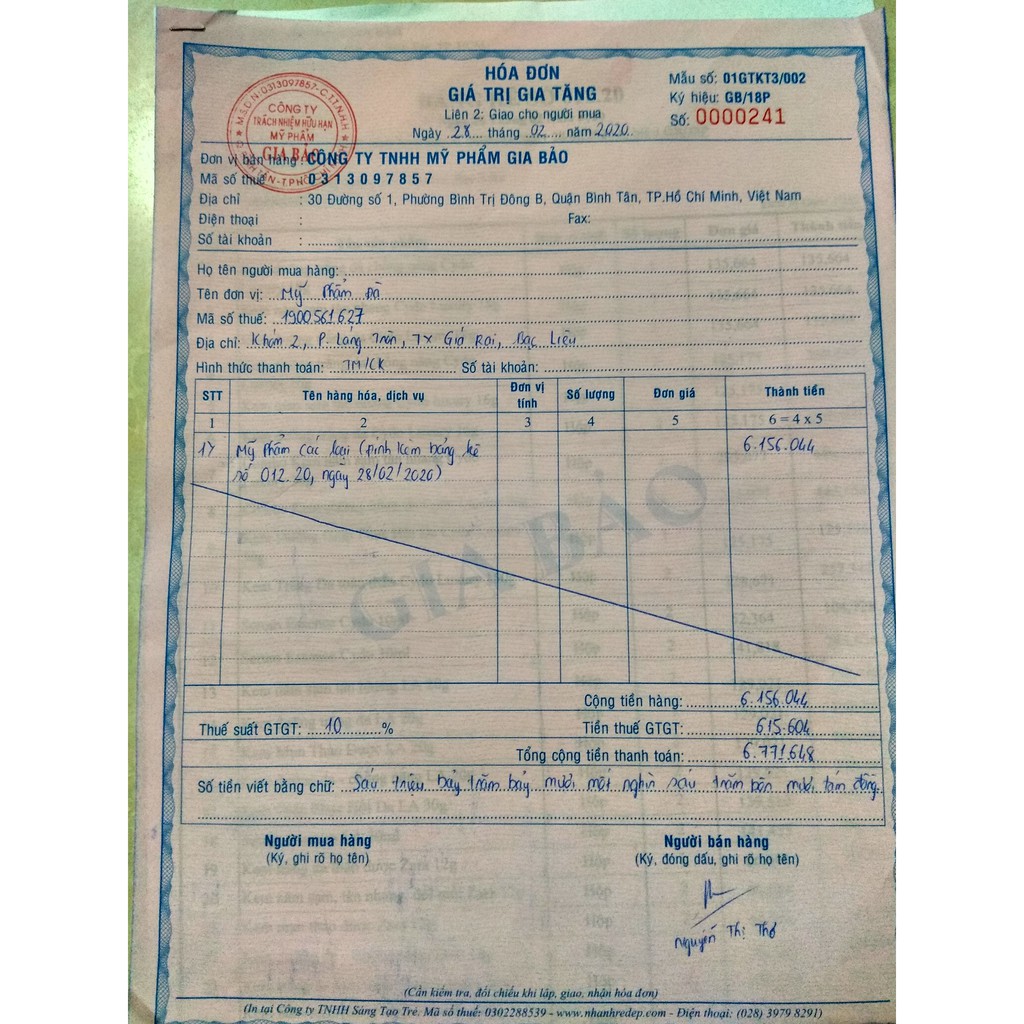 HÓA ĐƠN
GIÁ TRỊ GIA TĂNG
Liên 2: Giao cho người mua
Ngày 28 tháng 02 năm 2020
Mẫu số: 01GTKT3/002
Ký hiệu: GB/18P
Số: 0000241
M.S.D.N:0313097857-C.T.T.N.H.H
CÔNG TY
TRÁCH NHIỆM HỮU HẠN
MỸ PHẨM
GIA BẢO
Đơn vị bán hàng : CÔNG TY TNHH MỸ PHẨM GIA BẢO
Mã số thuế : 0313097857
Địa chỉ : 30 Đường số 1, Phường Bình Trị Đông B, Quận Bình Tân, TP.Hồ Chí Minh, Việt Nam
Điện thoại : Fax:
Số tài khoản :
Họ tên người mua hàng:
Tên đơn vị: Mỹ Phẩm Đà
Mã số thuế: 1900561627
Địa chỉ: Khóm 2, P. Láng Tròn, TX Giá Rai, Bạc Liêu
Hình thức thanh toán: TM/CK Số tài khoản:
STT Tên hàng hóa, dịch vụ Đơn vị tính Số lượng Đơn giá Thành tiền
1 2 3 4 5 6 = 4 x 5
Mỹ Phẩm các loại (Đính kèm bảng kê 6.156.044
số 012.20, ngày 28/02/2020)
GIA BẢO
Cộng tiền hàng: 6.156.044
Thuế suất GTGT: 10 % Tiền thuế GTGT: 615.604
Tổng cộng tiền thanh toán: 6.771.648
Số tiền viết bằng chữ: Sáu triệu bảy trăm bảy mươi mốt nghìn sáu trăm bốn mươi tám đồng.
Người mua hàng Người bán hàng
(Ký, ghi rõ họ tên) (Ký, đóng dấu, ghi rõ họ tên)
Nguyễn Thị Thơ
(Cần kiểm tra, đối chiếu khi lập, giao, nhận hóa đơn)
(In tại Công ty TNHH Sáng Tạo Trẻ. Mã số thuế: 0302288539 - www.nhanhredep.com - Điện thoại: (028) 3979 8291)